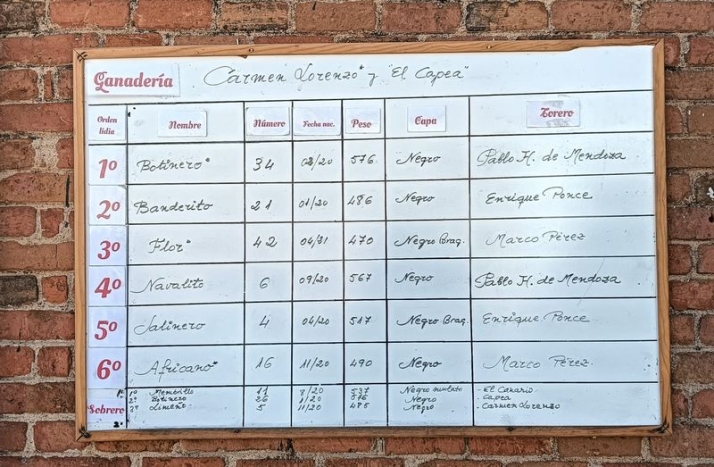 Ganadería Carmen Lorenzo* y "El Capea"
Orden lidia Nombre Número Fecha nac. Peso Capa Torero
1º Botinero* 34 03/20 576 Negro Pablo H. de Mendoza
2º Banderito 21 01/20 486 Negro Enrique Ponce
3º Flor* 42 04/21 470 Negro Brag. Marco Pérez
4º Navalito 6 09/20 567 Negro Pablo H. de Mendoza
5º Jalinero 4 04/20 517 Negro Brag. Enrique Ponce
6º Africano* 16 11/20 490 Negro Marco Pérez
1º Membrillo 11 /20 537 Negro - El Canario
2º Botinero 26 1/20 Negro - Capea
Sobrero 5 11/20 485 Negro - Carmen Lorenzo
2º